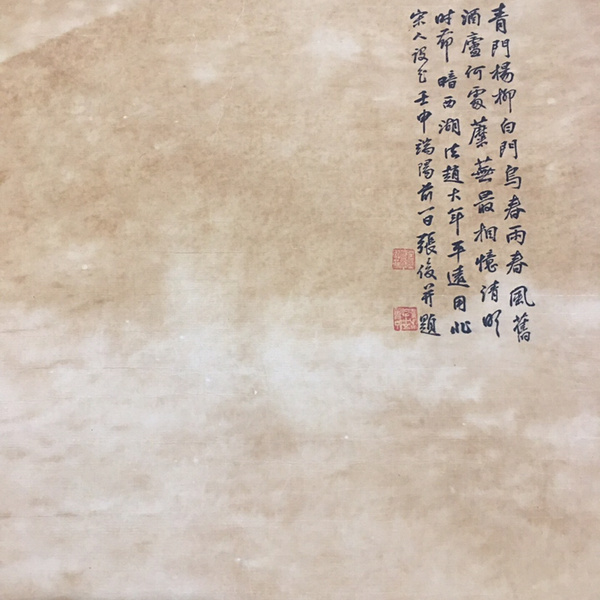 青門楊柳白門烏春雨春風舊
酒廬何處蘼蕪最相憶清明
時節暗西湖法趙大年平遠用北
宋人設色壬申端陽前一日張俊并題